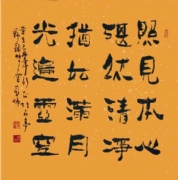 照見本心
湛然清淨
猶如滿月
光遍虛空